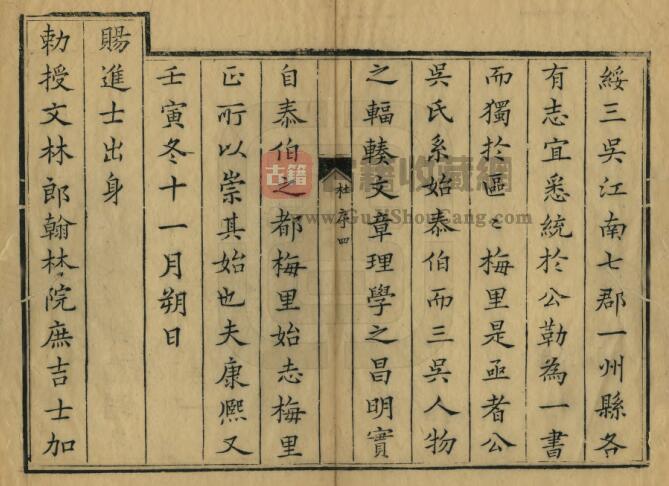 綏三吳江南七郡一州縣各
有志宜悉統於公勒為一書
而獨於區〻梅里是亟者公
吳氏系始泰伯而三吳人物
之輻輳文章理學之昌明實
杜序四
自泰伯之都梅里始志梅里
正所以崇其始也夫康熙又
壬寅冬十一月朔日
賜進士出身
勅授文林郎翰林院庶吉士加
古籍
古籍收藏網
www.GuJiShouCang.com